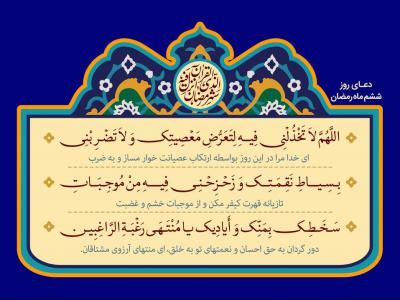 دعـای روز
ششم ماه رمضان
شهر رمضان الذی انزل فیه القرآن
اللَّهُمَّ لاَ تَخْذُلْنِی فِیهِ لِتَعَرُّضِ مَعْصِیَتِکَ وَ لاَ تَضْرِبْنِی
ای خدا مرا در این روز بواسطه ارتکاب عصیانت خوار مساز و به ضرب
بِسِیَاطِ نَقِمَتِکَ وَ زَحْزِحْنِی فِیهِ مِنْ مُوجِبَاتِ
تازیانه قهرت کیفر مکن و از موجبات خشم و غضبت
سَخَطِکَ بِمَنِّکَ وَ أَیَادِیکَ یَا مُنْتَهَی رَغْبَةِ الرَّاغِبِینَ
دور گردان به حق احسان و نعمتهای تو به خلق، ای منتهای آرزوی مشتاقان.